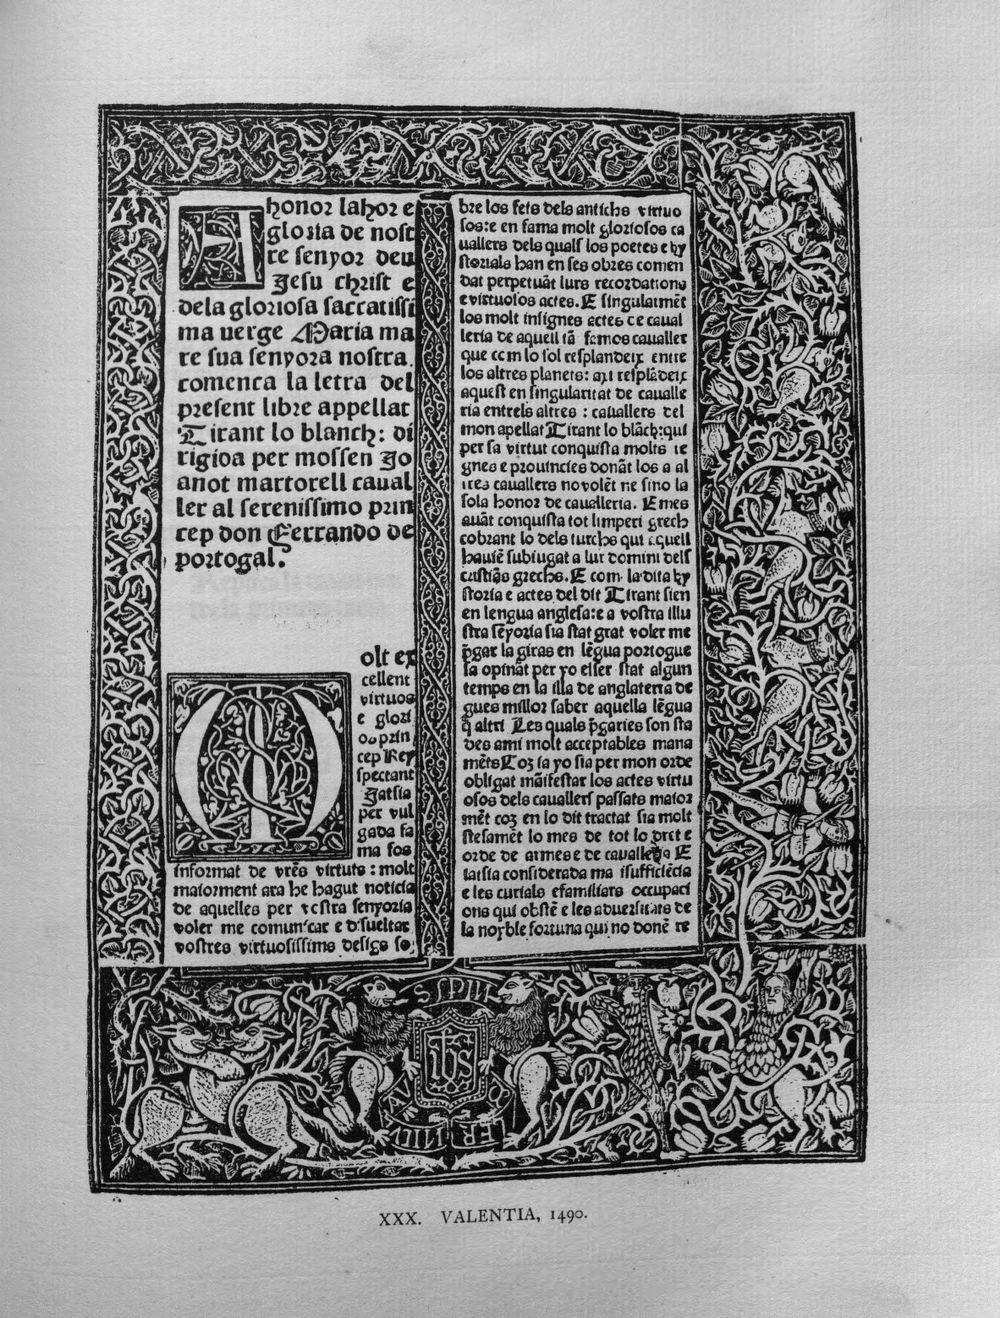 A honor lahor e
gloria de nost
re senyor deu
Jesu christ e
dela gloriosa sacratissi
ma verge Maria ma
re sua senyora nostra.
comenca la letra del
present libre appellat
Tirant lo blanch: di
rigida per mossen Jo
anot martorell caual
ler al serenissimo prin
cep don Ferrando de
portogal.
Molt ex
cellent
virtuos
e glori
prin
cep Rey
spectant
Jatsia
per vul
gada fa
ma fos
informat de vrẽs virtuts: molt
maiorment ara he hagut noticia
de aquelles per vostra senyoria
voler me comunicar e disuelar
vostres virtuosissims desigs so
bre los fets dels antichs virtuo
sos: e en fama molt gloriosos ca
uallers dels quals los poetes e hy
storials han en ses obres comen
dat perpetuãt lurs recordations
e virtuosos actes. E singularmẽt
los molt insignes actes de caual
leria de aquell tã famos caualler
que com lo sol resplandeix entre
los altres planets: axi resplãdeix
aquest en singularitat de caualle
ria entrels altres: cauallers del
mon apellat Tirant lo blãch: qui
per sa virtut conquista molts re
gnes e prouincies donãt los a al
tres cauallers no volẽt ne sino la
sola honor de caualleria. E mes
auãt conquista tot limperi grech
cobrant lo dels turchs qui aquell
hauiẽ subiugat a lur domini dels
cristiãs grechs. E com la dita hy
storia e actes del dit Tirant sien
en lengua anglesa: e a vostra illu
stra sẽyoria sia stat grat voler me
p̃gar la giras en lẽgua portogue
sa opinãt per yo esser stat algun
temps en la illa de anglaterra de
gues millor saber aquella lẽgua
q̃ altri Les quals p̃garies son sta
des ami molt acceptables mana
mẽts Com ia yo sia per mon orde
obligat mãifestar los actes virtu
osos dels cauallers passats maior
mẽt com en lo dit tractat sia molt
stesamẽt lo mes de tot lo dret e
orde de armes e de caualleria E
iatsia considerada ma isufficiẽcia
e les curials e familiars occupaci
ons qui obstẽ e les aduersitats de
la noyble fortuna qui no donẽ re
IHS
XXX. VALENTIA, 1490.